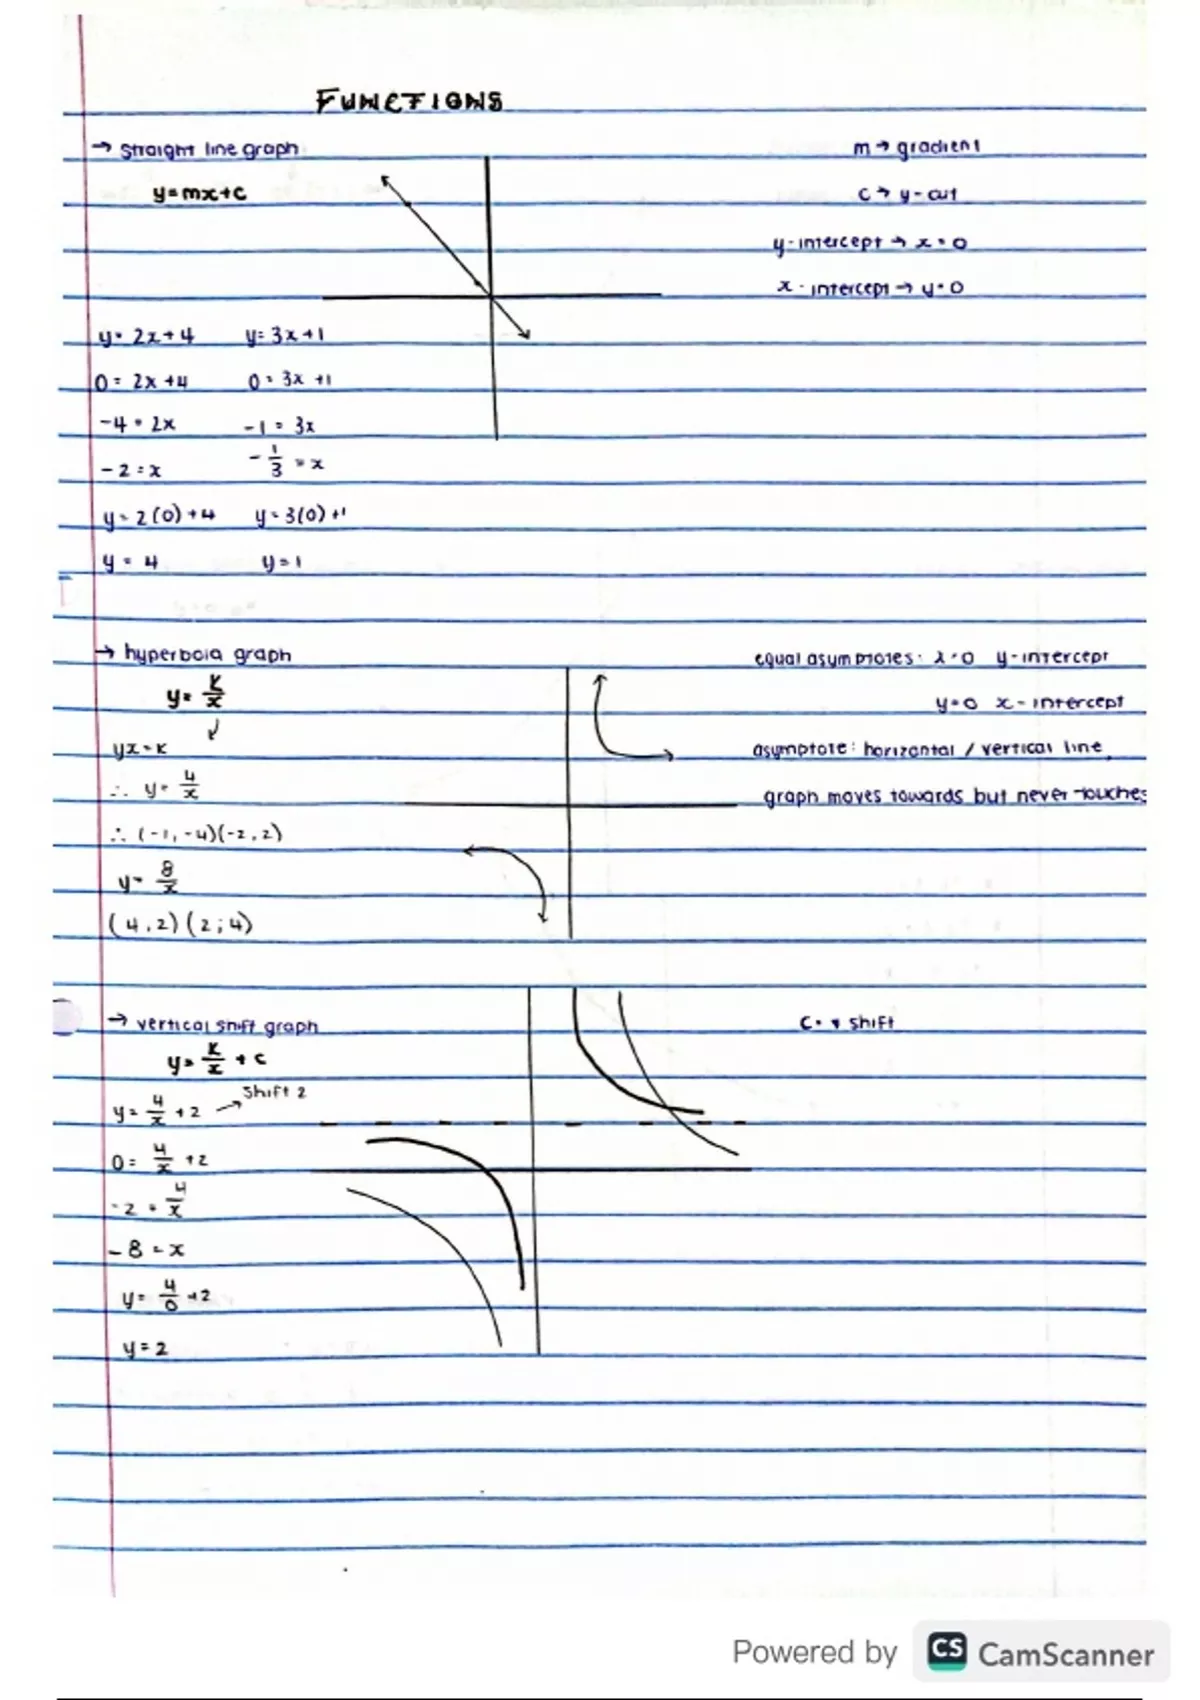 FUNCTIONS
→ straight line graph
m → gradient
y=mx+c
c → y-cut
y-intercept → x=0
x-intercept → y=0
y=2x+4 y=3x+1
0=2x+4 0=3x+1
-4=2x -1=3x
-2=x -1/3=x
y=2(0)+4 y=3(0)+1
y=4 y=1
→ hyperbola graph
equal asymptotes: x=0 y-intercept
y=k/x
y=0 x-intercept
yx=k
asymptote: horizontal / vertical line,
∴ y=4/x
graph moves towards but never touches
∴ (-1,-4)(-2,2)
y=8/x
(4,2)(2;4)
→ vertical shift graph
shift
y=k/x+c
y=4/x+2 → shift 2
0=4/x+2
-2=4/x
-8=x
y=4/0+2
y=2
Powered by CS CamScanner